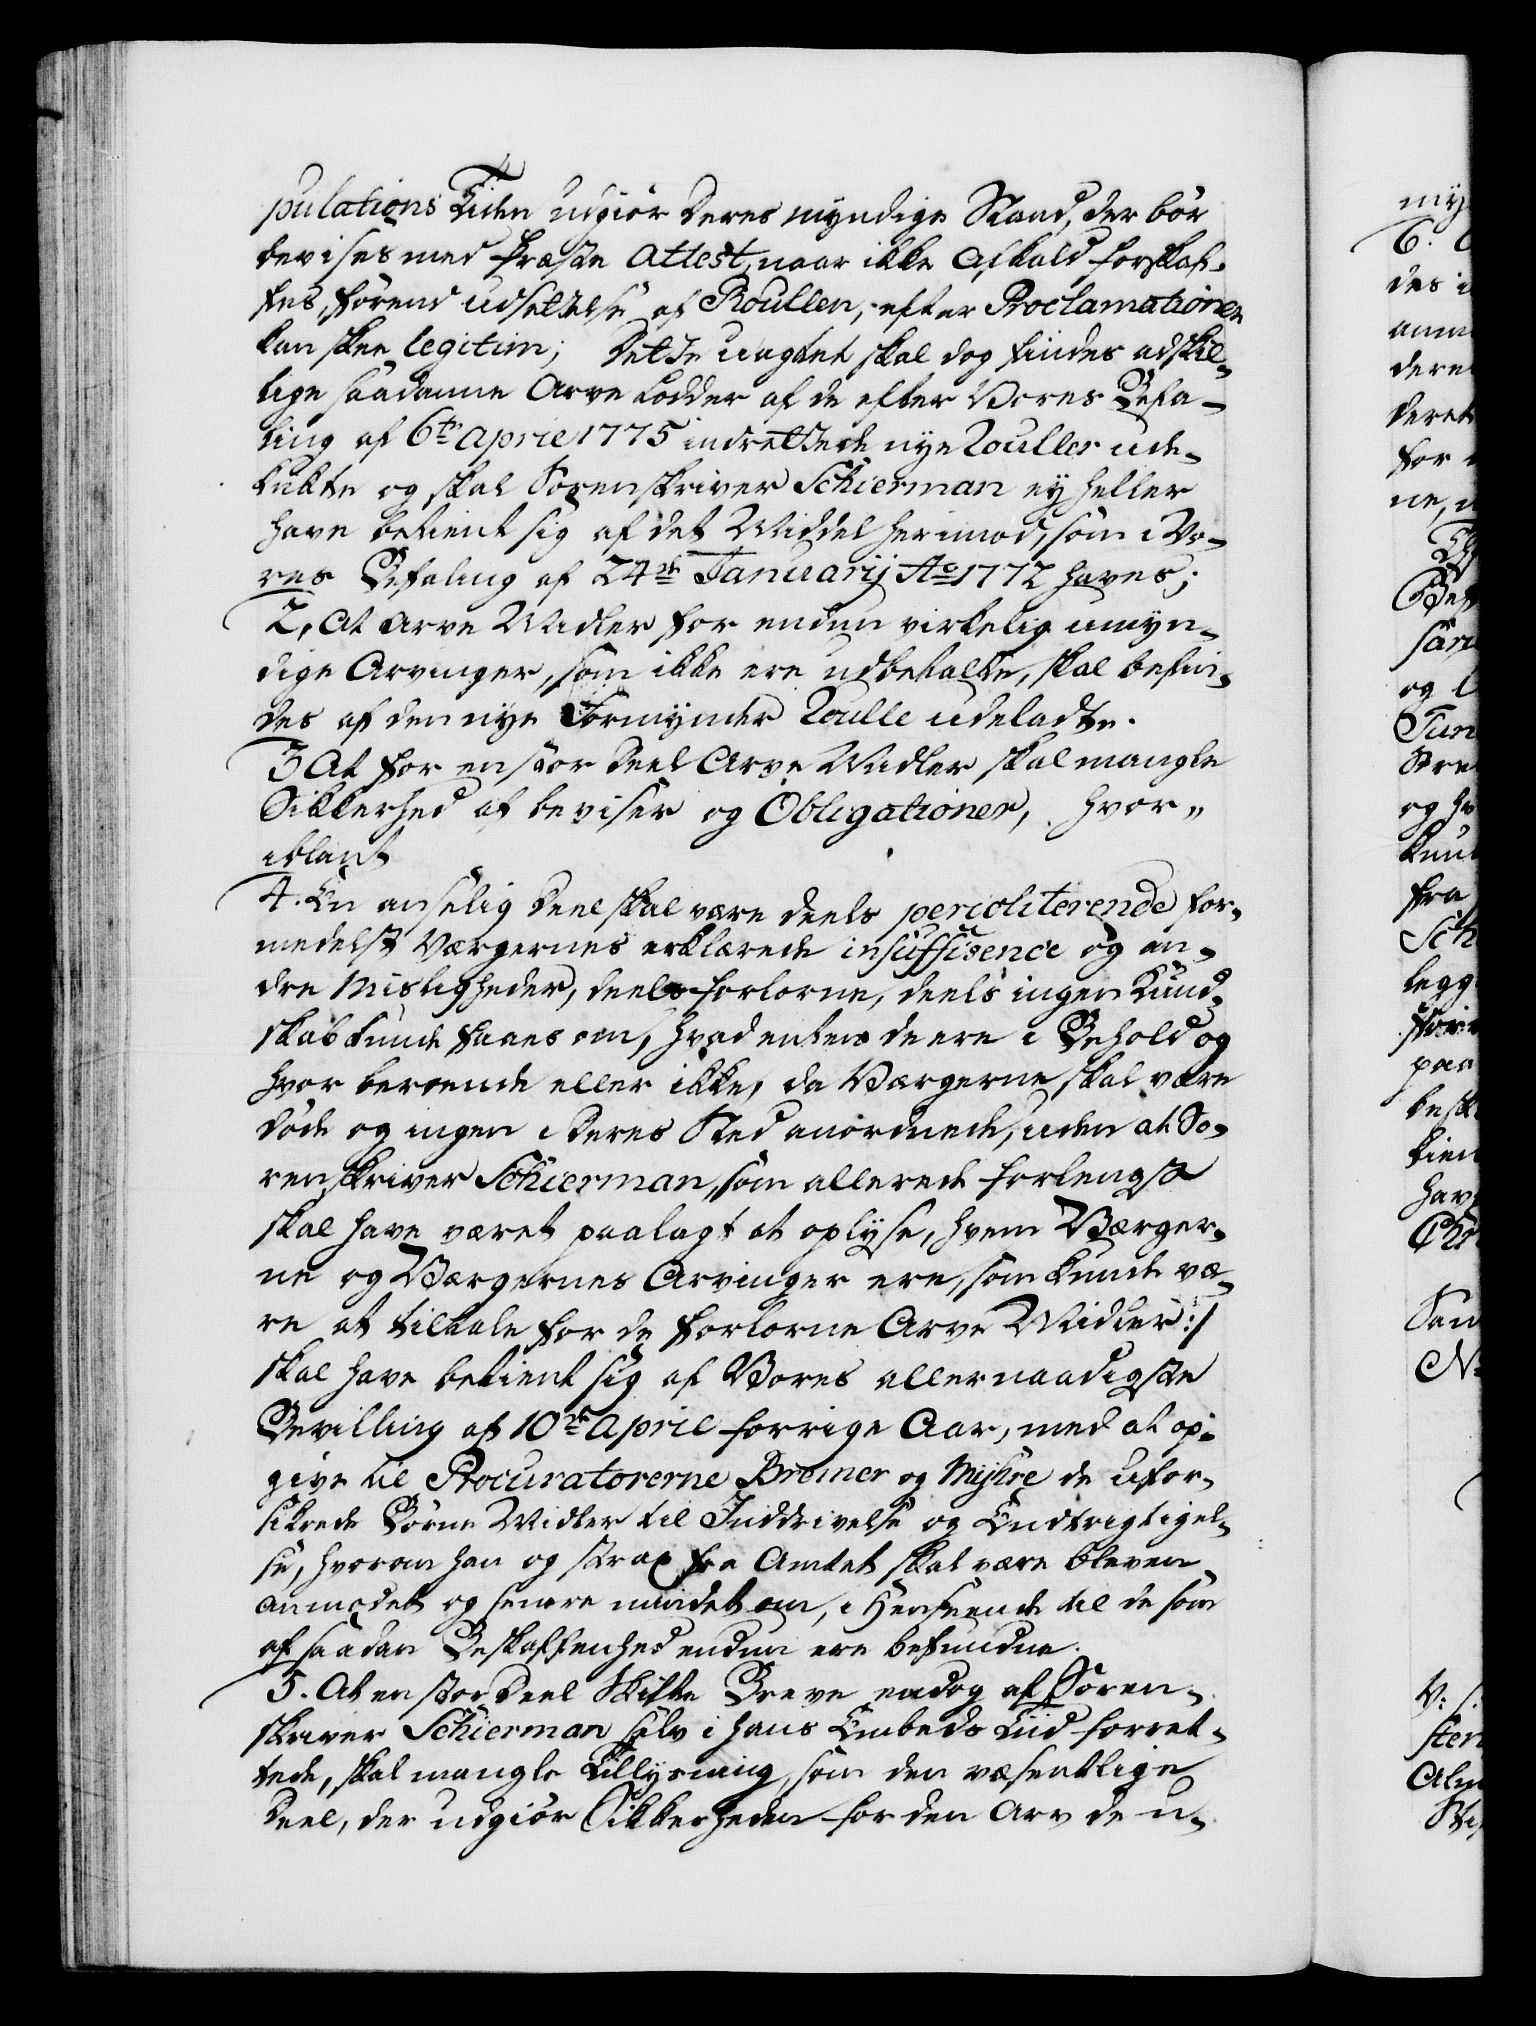 pulations Tiden udgiør deres myndige Stand, der bør
bevises med Præste Attest, naar ikke Afkald forskaf-
fes, førend udsettelse af Roullen, efter Proclamationer
kan skee legitim; Dette uagtet skal dog findes adskil-
lige saadanne Arve Lodder af de efter Vores Befa-
ling af 6te April 1775 indrettede nye Rouller ude-
lukte og skal Sorenskriver Schierman ey heller
have betient sig af det Middel herimod, som i Vo-
res Befaling af 24de Januarij Ao 1772 haves;
2, At Arve Midler for endnu virkelig umyn-
dige Arvinger, som ikke ere udbetalte, skal befin-
des af den nye Formynder Roulle udeladte.
3 At for en stor Deel Arve Midler skal mangle
Sikkerhed af beviser og Obligationer, hvor-
iblant
4. En anselig Deel skal være deels pericliterende for-
medelst Værgernes erklærede insuffisence og an-
dre Misligheder, deels forlorne, deels ingen Kund-
skab kunde faaes om, hvad enten de ere i Behold og
hvor beroende eller ikke, da Værgerne skal være
døde og ingen i deres Sted anordnede, uden at So-
renskriver Schierman, som allerede forlengst
skal have været paalagt at oplyse, hvem Værger-
ne og Værgernes Arvinger ere, som kunde væ-
re at tiltale for de forlorne Arve Midler:/
skal have betient sig af Vores allernaadigste
Bevilling af 10de April forrige Aar, med at op-
give til Procuratorerne Bremer og Myhre de ufor-
sikrede Børne Midler til Inddrivelse og Endtrigtigel-
se, hvorom han og strax fra Amtet skal være bleven
anmodet og senere mindet om, i Henseende til de som
af saadan Beskaffenhed endnu ere befundne.
5. At en stor Deel Skifte Breve endog af Soren-
skriver Schierman selv i hans Embeds Tiid forret-
tede, skal mangle Tinglysning, som den væsentlige
Deel, der udgiør Sikkerheden for den Arv de u-